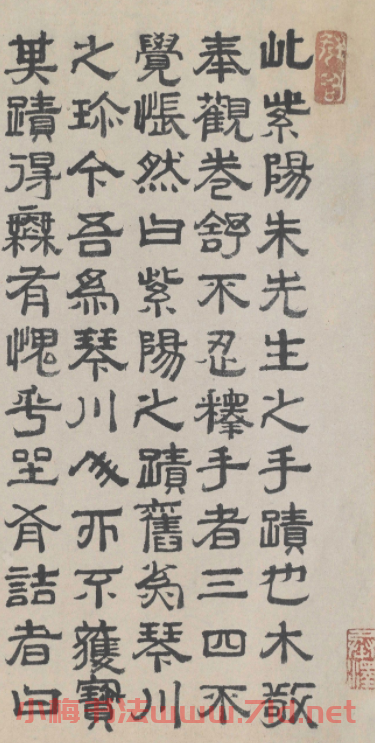 此紫陽朱先生之手蹟也木敬
奉觀卷舒不忍釋手者三四不
覺悵然曰紫陽之蹟舊為琴川
之珎今吾為琴川人亦不獲寶
其蹟得無有愧乎坐有詰者曰
小梅书法www.71d.net